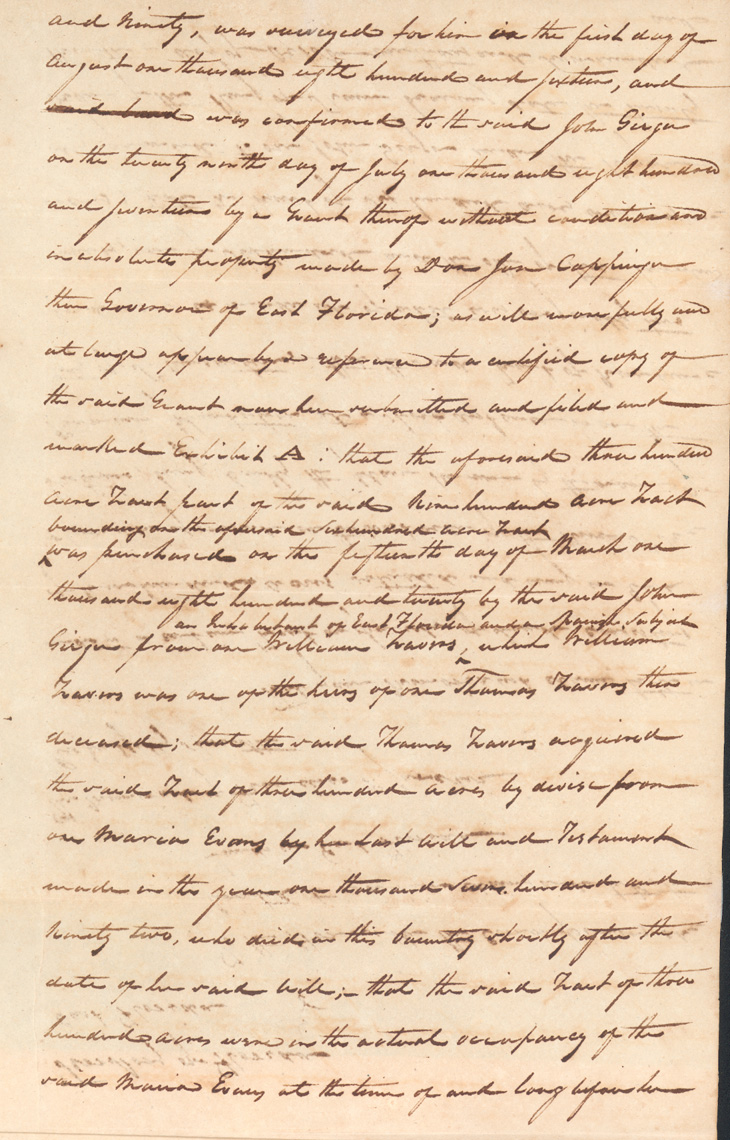 and Ninety, was surveyed for him on the first day of
August one thousand eight hundred and sixteen, and
said land was confirmed to the said John Geiger
on the twenty ninth day of July one thousand eight hundred
and seventeen by a Grant thereof without condition and
in absolute property made by Don Jose Coppinger
then Governor of East Florida; as will more fully and
at large appear by a reference to a certified copy of
the said Grant now here submitted and filed and
marked Exhibit A : that the aforesaid three hundred
acre Tract part of the said Nine hundred Acre Tract
bounding on the aforesaid Six hundred acre Tract
was purchased on the fifteenth day of March one
thousand eight hundred and twenty by the said John
an Inhabitant of East Florida and a Spanish Subject
Geiger from one William Travers, which William
Travers was one of the heirs of one Thomas Travers then
deceased; that the said Thomas Travers acquired
the said Tract of three hundred acres by devise from
one Maria Evans by her Last Will and Testament
made in the year one thousand Seven hundred and
Ninety two, who died in this Country shortly after the
date of her said Will; - that the said Tract of three
hundred acres were in the actual occupancy of the
said Maria Evans at the time of and long before her